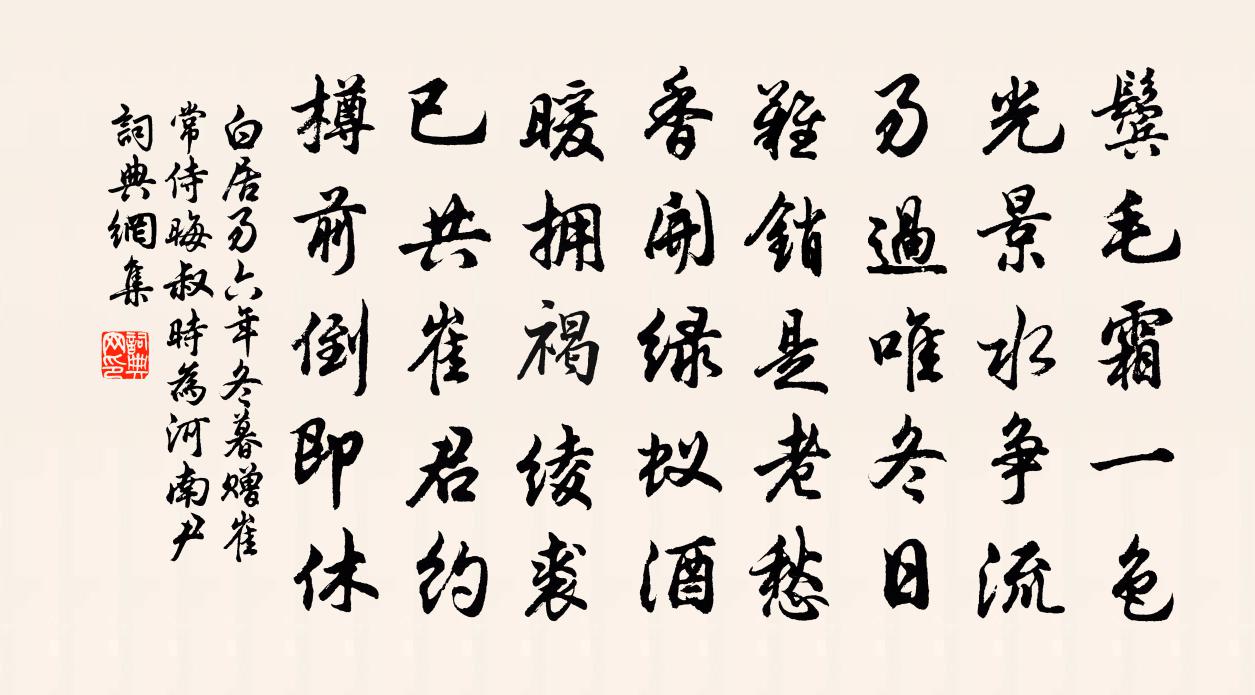 鬓毛霜一色
光景水争流
易過唯冬日
難銷是老愁
香開绿蚁酒
暖拥褐绫裘
已共崔君约
樽前倒即休
白居易六年冬暮赠崔
常侍晦叔時為河南尹
詞典網集
詞典网印